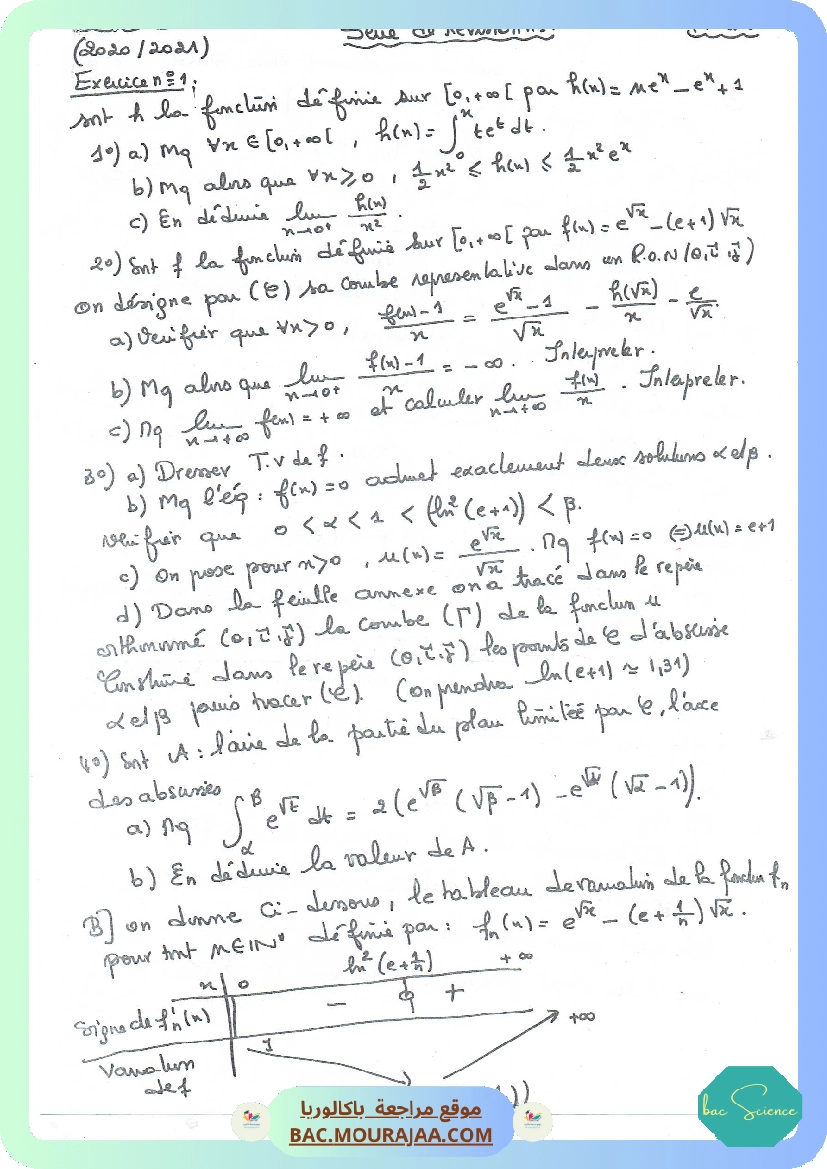 (2020/2021)
Série de Révisions
Exercice n°1:
soit h la fonction définie sur [0,+∞[ par h(x) = xe^x - e^x + 1
1°) a) Mq ∀x ∈ [0,+∞[ , h(x) = ∫_0^x te^t dt.
b) Mq alors que ∀x ⩾ 0 , 1/2 x² ≤ h(x) ≤ 1/2 x² e^x
c) En déduire lim_{x→0+} h(x)/x² .
2°) Soit f la fonction définie sur [0,+∞[ par f(x) = e^√x - (e+1)√x
on désigne par (C) sa courbe représentative dans un R.O.N (O,i,j)
a) Vérifier que ∀x>0, (f(x)-1)/x = (e^√x - 1)/√x - h(√x)/x - e/√x.
b) Mq alors que lim_{x→0+} (f(x)-1)/x = -∞. Interpreter.
c) Mq lim_{x→+∞} f(x) = +∞ et calculer lim_{x→+∞} f(x)/x . Interpreter.
3°) a) Dresser T.v de f.
b) Mq l'éq: f(x)=0 admet exactement deux solutions α et β.
Vérifier que 0 < α < 1 < (ln²(e+1)) < β.
c) On pose pour x>0, u(x) = e^√x/√x . Mq f(x)=0 ⇔ u(x) = e+1
d) Dans la feuille annexe on a tracé dans le repère
orthonormé (O,i,j) la courbe (Γ) de la fonction u
Construire dans le repère (O,i,j) les points de C d'abscisse
α et β puis tracer (C). (on prendra ln(e+1) ≃ 1,31)
4°) Soit A: l'aire de la partie du plan limitée par C, l'axe
des abscisses
a) Mq ∫_α^β e^√t dt = 2(e^√β (√β-1) - e^√α (√α-1)).
b) En déduire la valeur de A.
B] on donne ci-dessous, le tableau de variation de la fonction fn
pour tout n∈IN* définie par: fn(x) = e^√x - (e + 1/n)√x.
x 0 ln²(e+1/n) +∞
Signe de f'n(x) - 0 +
Variation de f 1 +∞
))
موقع مراجعة باكالوريا
BAC.MOURAJAA.COM
bac Science